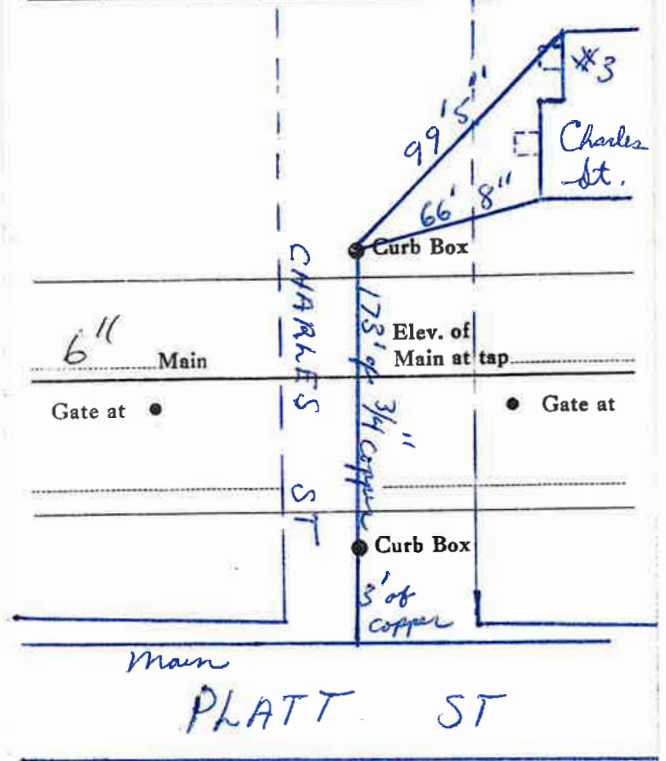 #3
99' 5"
Charles
St.
66' 8"
Curb Box
CHARLES ST
173' of 3/4" copper
6" Main
Elev. of
Main at tap
Gate at
Gate at
Curb Box
3' of
copper
Main
PLATT ST